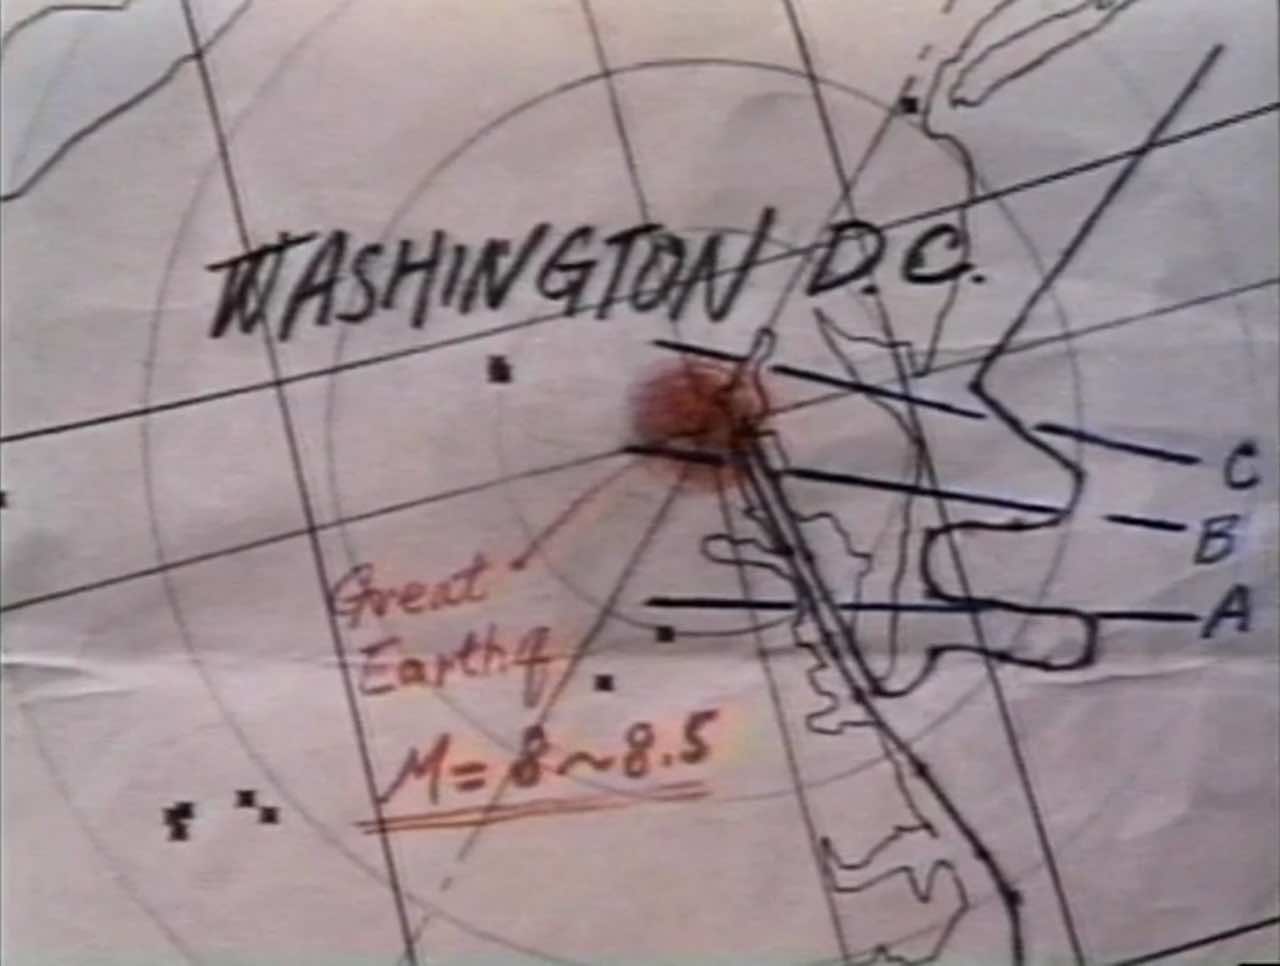 WASHINGTON D.C.
C
B
A
Great
Earthq
M = 8 ~ 8.5